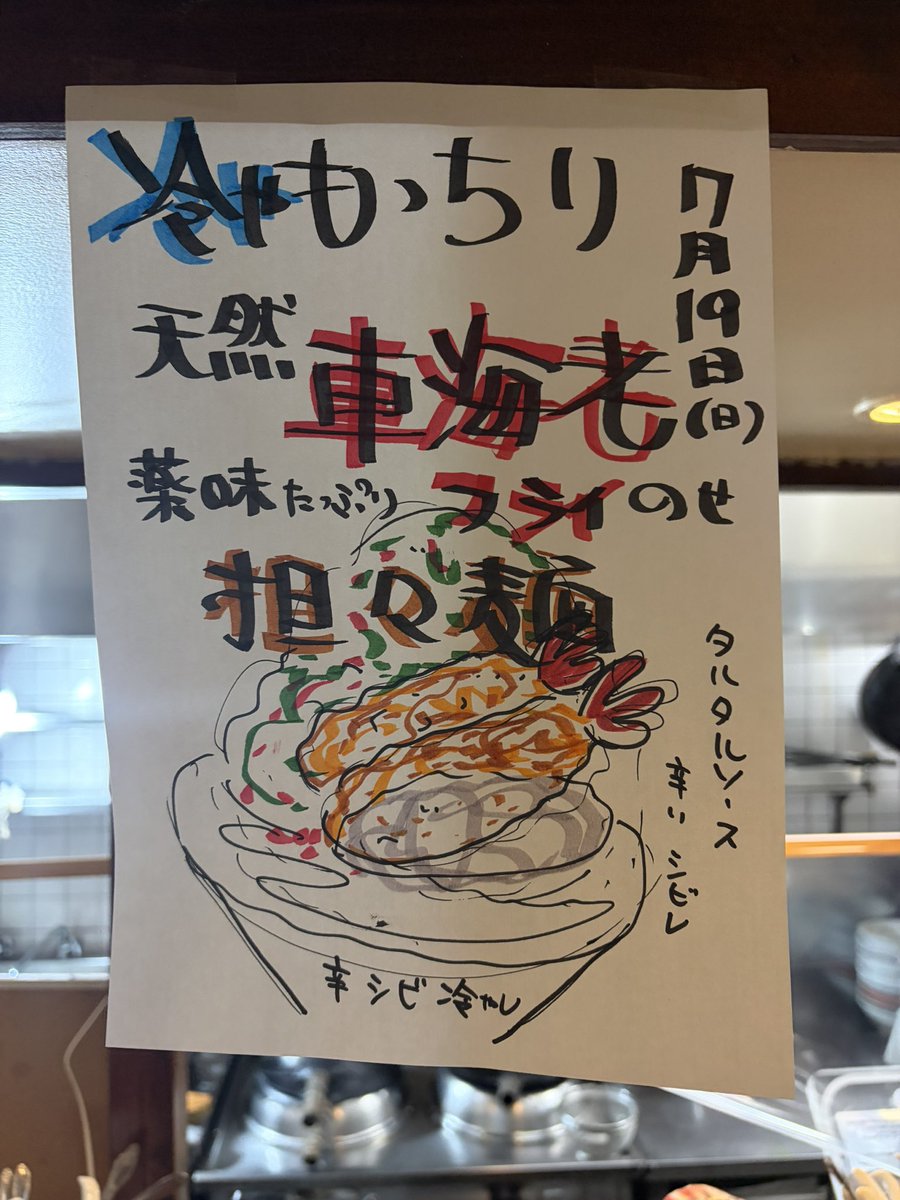 冷やもっちり
7月19日(日)
天然
車海老
薬味たっぷり
フライのせ
担々麺
タルタルソース
辛い シビレ
辛シビ冷やし